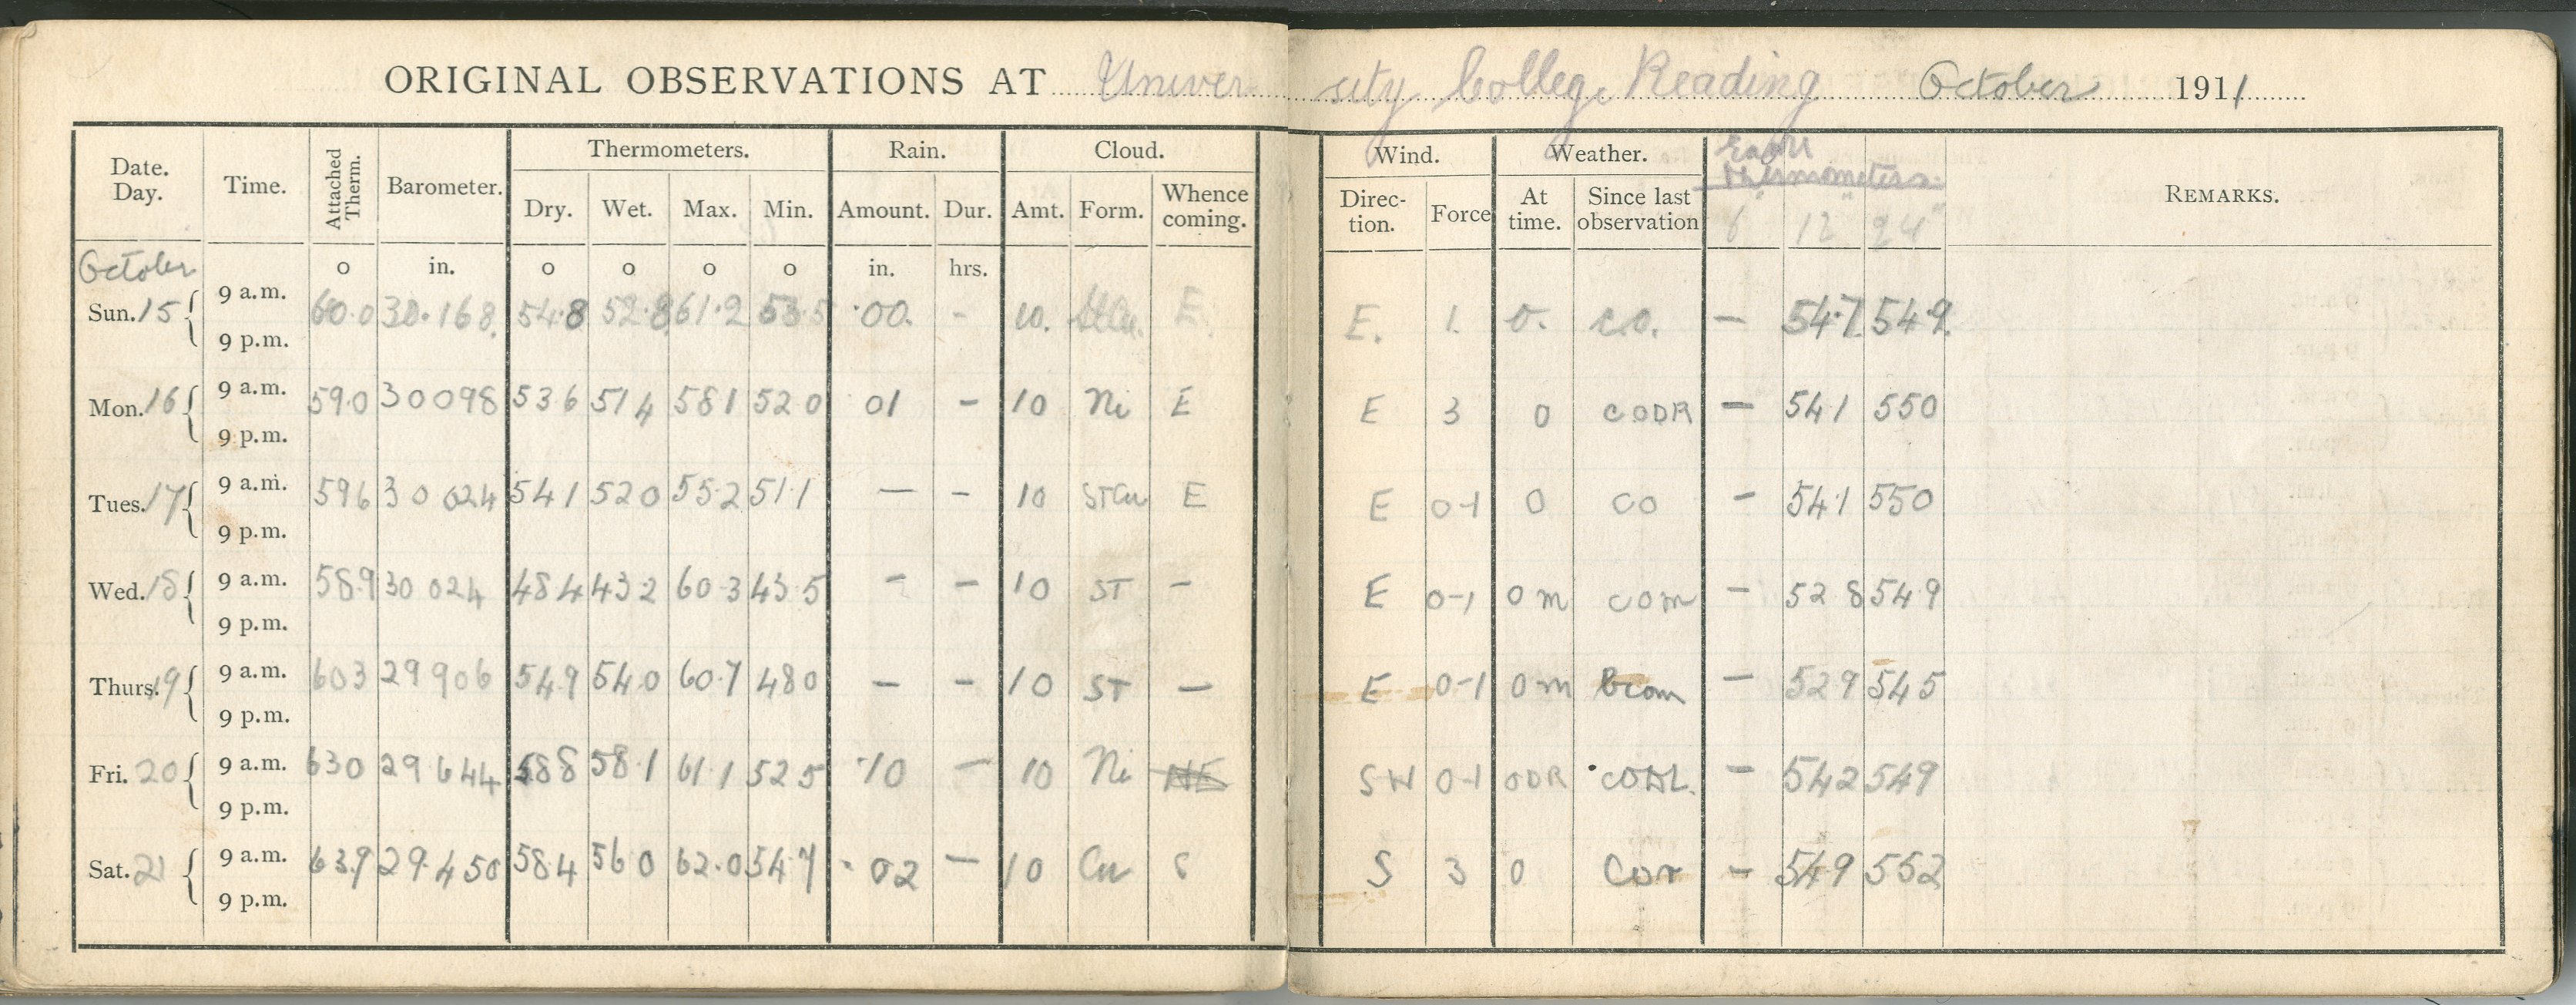 ORIGINAL OBSERVATIONS AT University College Reading October 1911
Date. Day. Time. Attached Therm. Barometer. Thermometers. Rain. Cloud. Wind. Weather. Earth thermometers. REMARKS.
Dry. Wet. Max. Min. Amount. Dur. Amt. Form. Whence coming. Direc-tion. Force At time. Since last observation 6" 12" 24"
October o in. o o o o in. hrs.
Sun. 15 9 a.m. 60.0 30.168. 54.8 52.8 61.2 53.5 .00. - 10. StCu. E. E. 1. o. co. — 54.7 54.9.
9 p.m.
Mon. 16 9 a.m. 59.0 30 098 53 6 51 4 58 1 52 0 01 - 10 Ni E E 3 0 CODR — 54 1 55 0
9 p.m.
Tues. 17 9 a.m. 59 6 30 024 54 1 52 0 55.2 51.1 — - 10 STCu E E 0-1 0 CO - 54.1 55 0
9 p.m.
Wed. 18 9 a.m. 58.9 30 024 48 4 43.2 60.3 43.5 - - 10 ST - E 0-1 0 m com - 52 8 54 9
9 p.m.
Thurs. 19 9 a.m. 60 3 29 906 54.9 54.0 60.7 48 0 — - 10 ST — E 0-1 0 m bcom - 52 9 54 5
9 p.m.
Fri. 20 9 a.m. 63 0 29 644 58 8 58.1 61.1 52 5 .10 - 10 Ni SW 0-1 ODR - 54 2 54 9
9 p.m.
Sat. 21 9 a.m. 63.9 29.450 58 4 56 0 62.0 54.7 .02 — 10 Cu S S 3 0 Cor - 54 9 55 2
9 p.m.